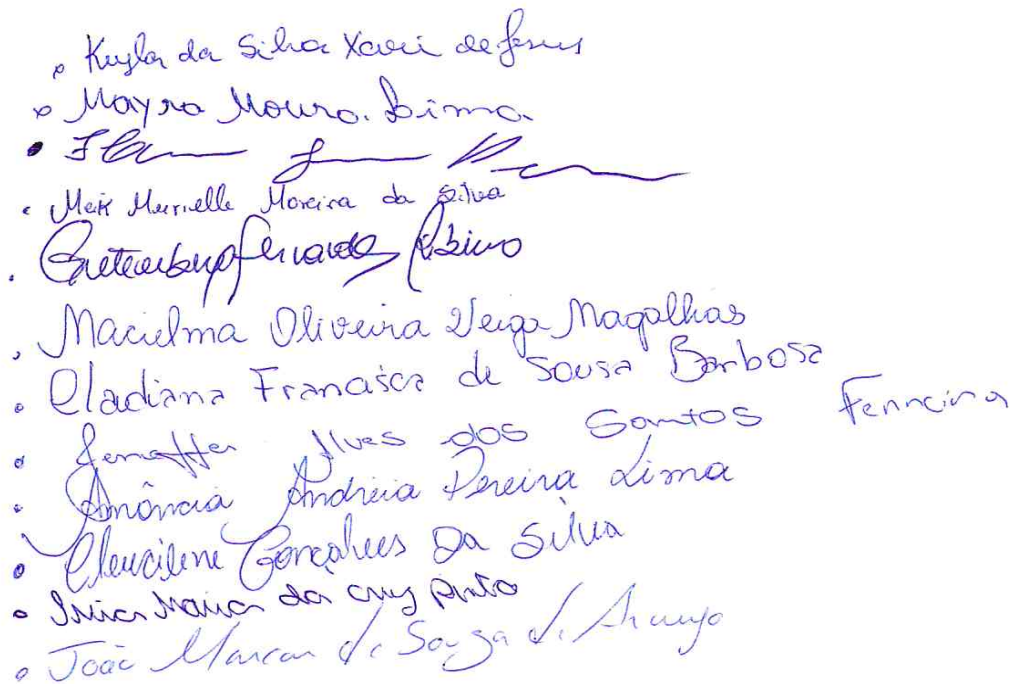 Kuyla da Silva Xavier de Jesus
Mayra Moura Lima
Meik Murielle Moreira da Silva
Gutemberg Fernandes Ribeiro
Macielma Oliveira Veiga Magalhas
Cladiana Francisca de Sousa Barbosa
Jeneffer Alves dos Santos Ferreira
Amância Andréia Pereira Lima
Cleucilene Gonçalves Da Silva
Maria da cruz pinto
João Marcos de Souza de Araujo